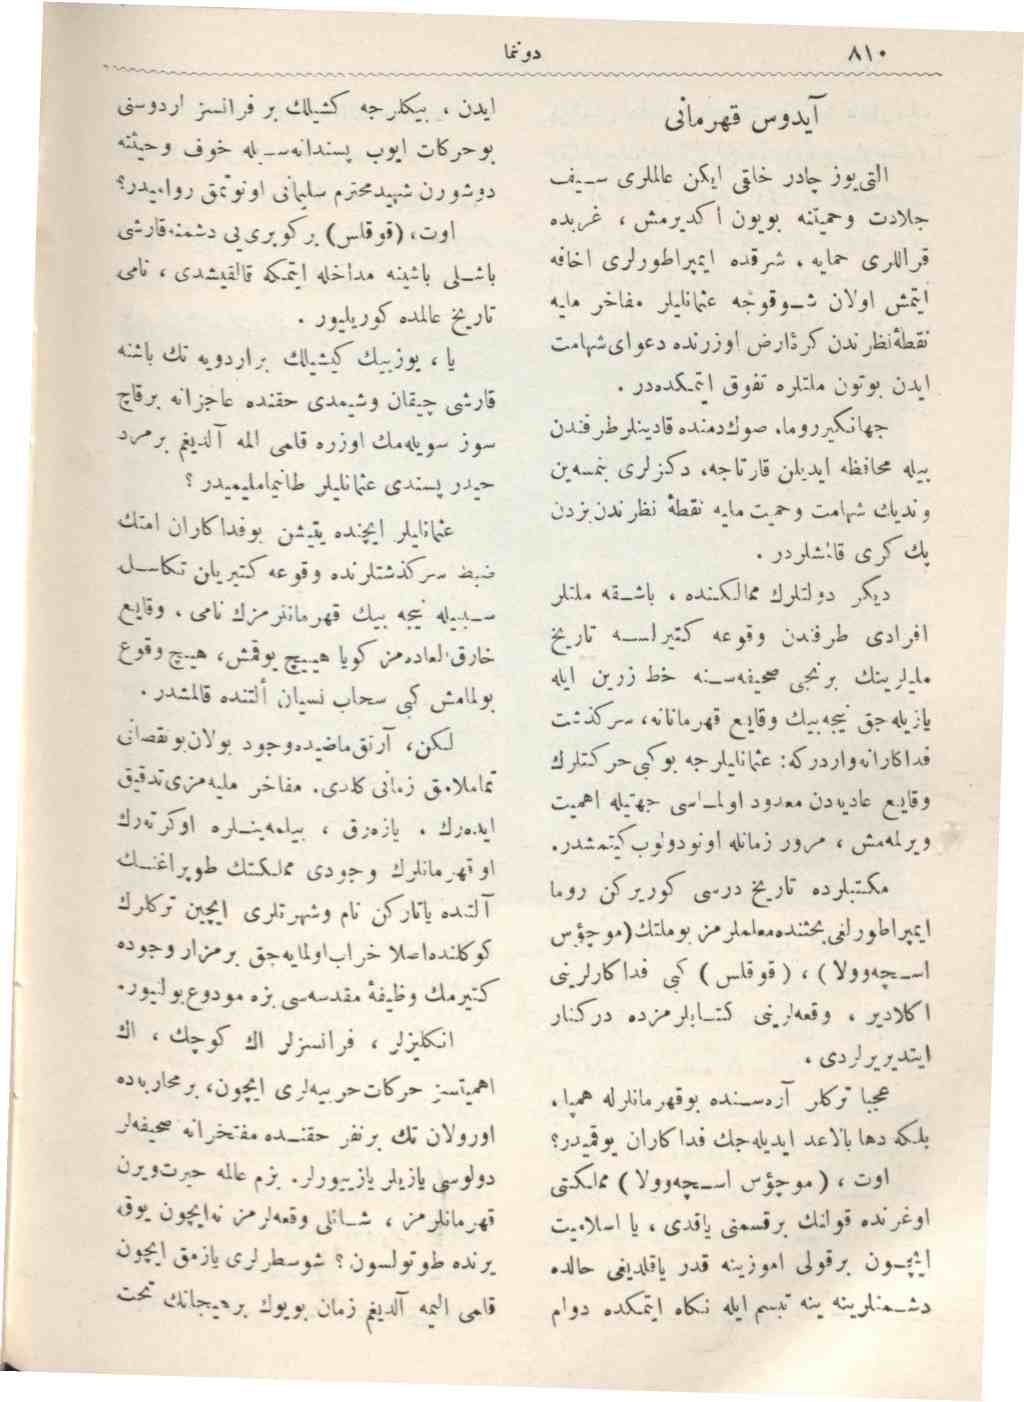 ٨١٠
دوننما
آیدوس قهرمانی
التی‌یوز چادر خلقی ایکن عالملری سیف
جلادت وحمیتنه بویون اکدیرمش ، غربده
قراللری حمایه ، شرقده ایمپراطورلری اخافه
ایتمش اولان شوقوجه عثمانلیلر مفاخر ملیه
نقطهٔ‌نظرندن کرهٔ‌ارض اوزرنده دعوای‌شهامت
ایدن بوتون ملتلره تفوق ایتمکده‌در .
جهانکیرروما، صوك‌دمنده قادینلرطرفندن
بیله محافظه ایدیلن قارتاجه، دکزلری بنمسه‌ین
وندیك شهامت وحمیت ملیه نقطهٔ نظرندن‌بزدن
پك کری قالمشلردر .
دیکر دولتلرك ممالکنده ، باشقه ملتلر
افرادی طرفندن وقوعه کتیرلسه تاریخ
ملیلرینك برنجی صحیفه‌سنه خط زرین ایله
یازیله‌جق نیجه‌بیك وقایع قهرمانانه، سرکذشت
فداکارانه‌واردرکه: عثمانلیلرجه بوکبی‌حرکتلرك
وقایع عادیه‌دن معدود اولماسی جهتیله اهمیت
ویرلمه‌مش ، مرور زمانله اونودولوب‌کیتمشدر.
مکتبلرده تاریخ درسی کوریرکن روما
ایمپراطورلغی‌بحثنده‌معلملرمز بوملتك(موچؤس
اسچه‌وولا) ، (قوقلس) کبی فداکارلرینی
اکلادیر ، وقعه‌لرینی کتابلرمزده درکنار
ایتدیریرلردی .
عجبا ترکلر آره‌سنده بوقهرمانلرله همپا،
بلکه دها بالاعد ایدیله‌جك فداکاران یوقمیدر؟
اوت ، (موچؤس اسچه‌وولا) مملکتی
اوغرنده قولنك برقسمنی یاقدی ، یا اسلامیت
ایچون برقولی اموزینه قدر یاقلدیغی حالده
دشمنلرینه ینه تبسم ایله نکاه ایتمکده دوام
ایدن ، بیکلرجه کشیلك بر فرانسز اردوسنی
بوحرکات ایوب پسندانه‌سیله خوف وحیثته
دوشورن شهیدمحترم سلیمانی اونوتمق روامیدر؟
اوت، (قوقلس) برکوپری‌یی دشمنه‌قارشی
باشلی باشینه مداخله ایتمکه قالقیشدی ، نامی
تاریخ عالمده کوریلیور .
یا ، یوزبیك کیشیلك براردویه تك باشنه
قارشی چیقان وشیمدی حقنده عاجزانه برقاچ
سوز سویله‌مك اوزره قلمی المه آلدیغم برمرد
حیدر پسندی عثمانلیلر طانیماملیمیدر ؟
عثمانلیلر ایچنده یتیشن بوفداکاران امتك
ضبط سرکذشتلرنده وقوعه کتیریلن تکاسل
سببیله نیجه بیك قهرمانلرمزك نامی ، وقایع
خارق‌العاده‌مز کویا هیچ یوقمش، هیچ وقوع
بولمامش کبی سحاب نسیان آلتنده قالمشدر.
لکن، آرتق‌ماضیده‌وجود بولان‌بونقصانی
تماملامق زمانی کلدی. مفاخر ملیه‌مزی‌تدقیق
ایده‌رك ، یازه‌رق ، بیلمه‌ینلره اوکرته‌رك
اوقهرمانلرك وجودی مملکتك طوپراغنك
آلتنده یاتارکن نام وشهرتلری ایچین ترکلرك
کوکلنده‌اصلا خراب‌اولمایه‌جق برمزار وجوده
کتیرمك وظیفهٔ مقدسه‌سی بزه مودوع‌بولنیور.
انکلیزلر ، فرانسزلر اك کوچك ، اك
اهمیتسز حرکات‌حربیه‌لری ایچون، برمحاربه‌ده
اورولان تك برنفر حقنده مفتخرانه صحیفه‌لر
دولوسی یازیلر یازییورلر. بزم عالمه حیرت‌ویرن
قهرمانلرمز ، شانلی وقعه‌لرمز نه‌ایچون یوق
یرنده طوتولسون ؟ شوسطرلری یازمق ایچون
قلمی الیمه آلدیغم زمان بویوك برهیجانك تحت